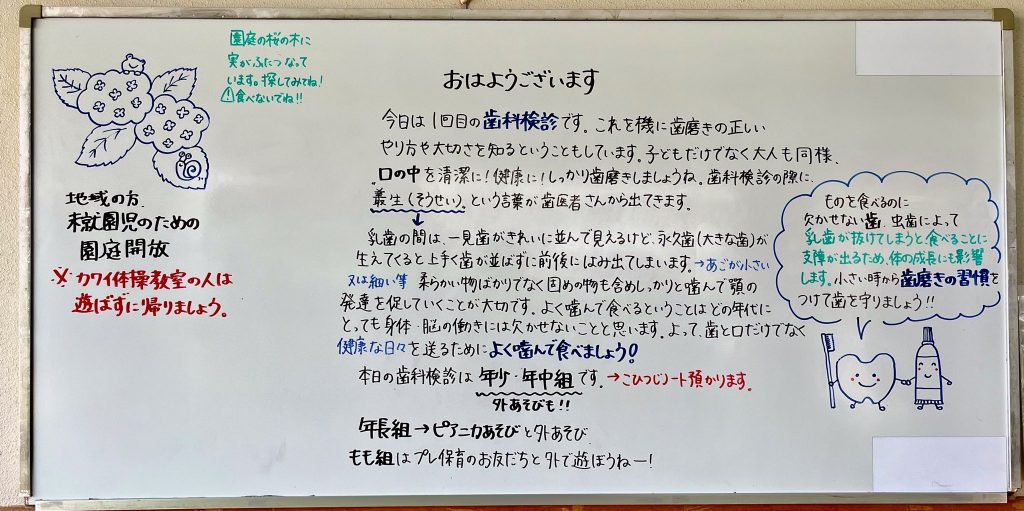 園庭の桜の木に
実がふたつなって
います。探してみてね!
⚠食べないでね!!
地域の方、
未就園児のための
園庭開放
※カワイ体操教室の人は
遊ばずに帰りましょう。
おはようございます
今日は1回目の歯科検診です。これを機に歯磨きの正しい
やり方や大切さを知るということもしています。子どもだけでなく大人も同様、
口の中を清潔に!健康に!しっかり歯磨きしましょうね。歯科検診の際に、
叢生(そうせい)。という言葉が歯医者さんから出てきます。
↓
乳歯の間は、一見歯がきれいに並んで見えるけど、永久歯(大きな歯)が
生えてくると上手く歯が並ばずに前後にはみ出てしまいます。→あごが小さい
又は細い等 柔らかい物ばかりでなく固めの物も含めしっかりと噛んで顎の
発達を促していくことが大切です。よく噛んで食べるということはどの年代に
とっても身体・脳の働きには欠かせないことと思います。よって、歯と口だけでなく
健康な日々を送るためによく噛んで食べましょう!
本日の歯科検診は 年少・年中組です。→こひつじノート預かります。
外あそびも!!
年長組→ピアニカあそびと外あそび
もも組はプレ保育のお友だちと外で遊ぼうねー!
ものを食べるのに
欠かせない歯、虫歯によって
乳歯が抜けてしまうと、食べることに
支障が出るため、体の成長にも影響
します。小さい時から歯磨きの習慣を
つけて歯を守りましょう!!